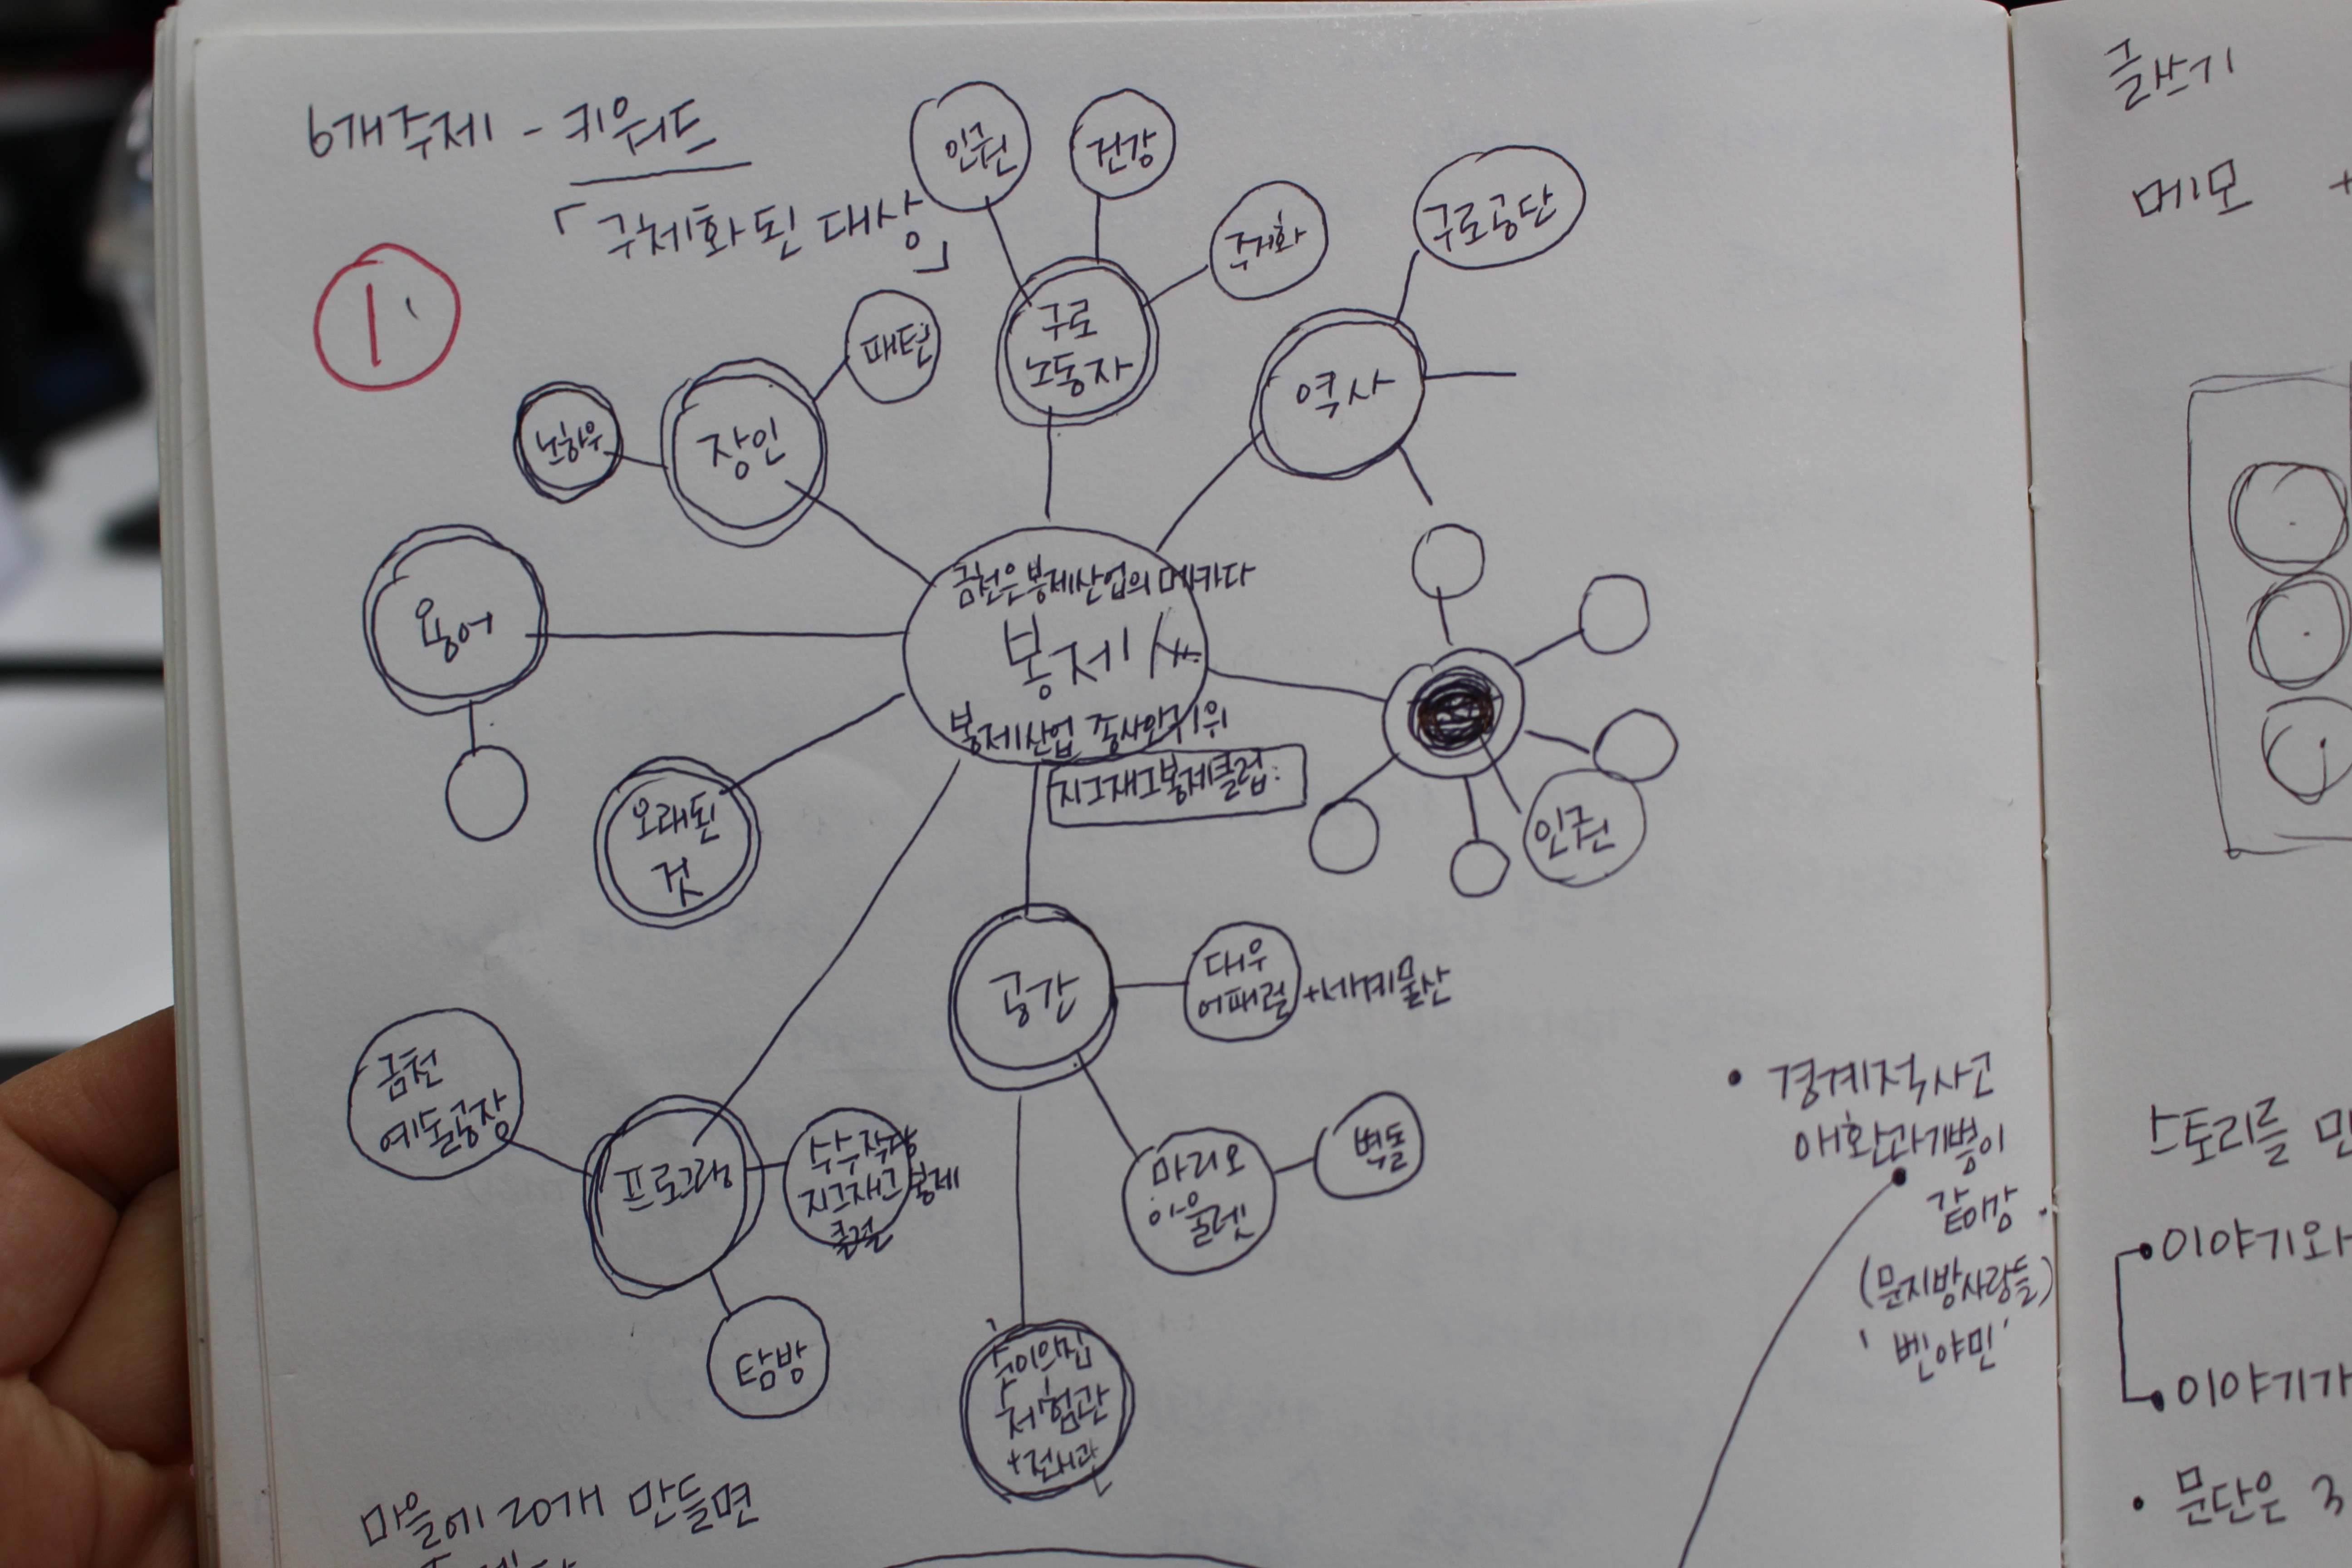 6개주제 - 키워드
「구체화된 대상」
1
인권
건강
주거화
구로공단
패턴
구로
노동자
역사
노하우
장인
용어
금천은 봉제산업의 메카다
봉제
봉제산업 종사인구 1위
지그재그봉제클럽:
오래된
것
인권
공간
대우
어패럴 +세계물산
금천
예술공장
프로그램
수수작당
지그재그봉제
클럽
마리오
아울렛
벽돌
탐방
순이의집
체험관
+전시관
• 경계적사고
애환과기쁨이
같이감.
(문지방사람들)
'벤야민'
마을에 20개 만들면
글쓰기
메모 +
스토리를
• 이야기와
• 이야기가
• 문단은 3